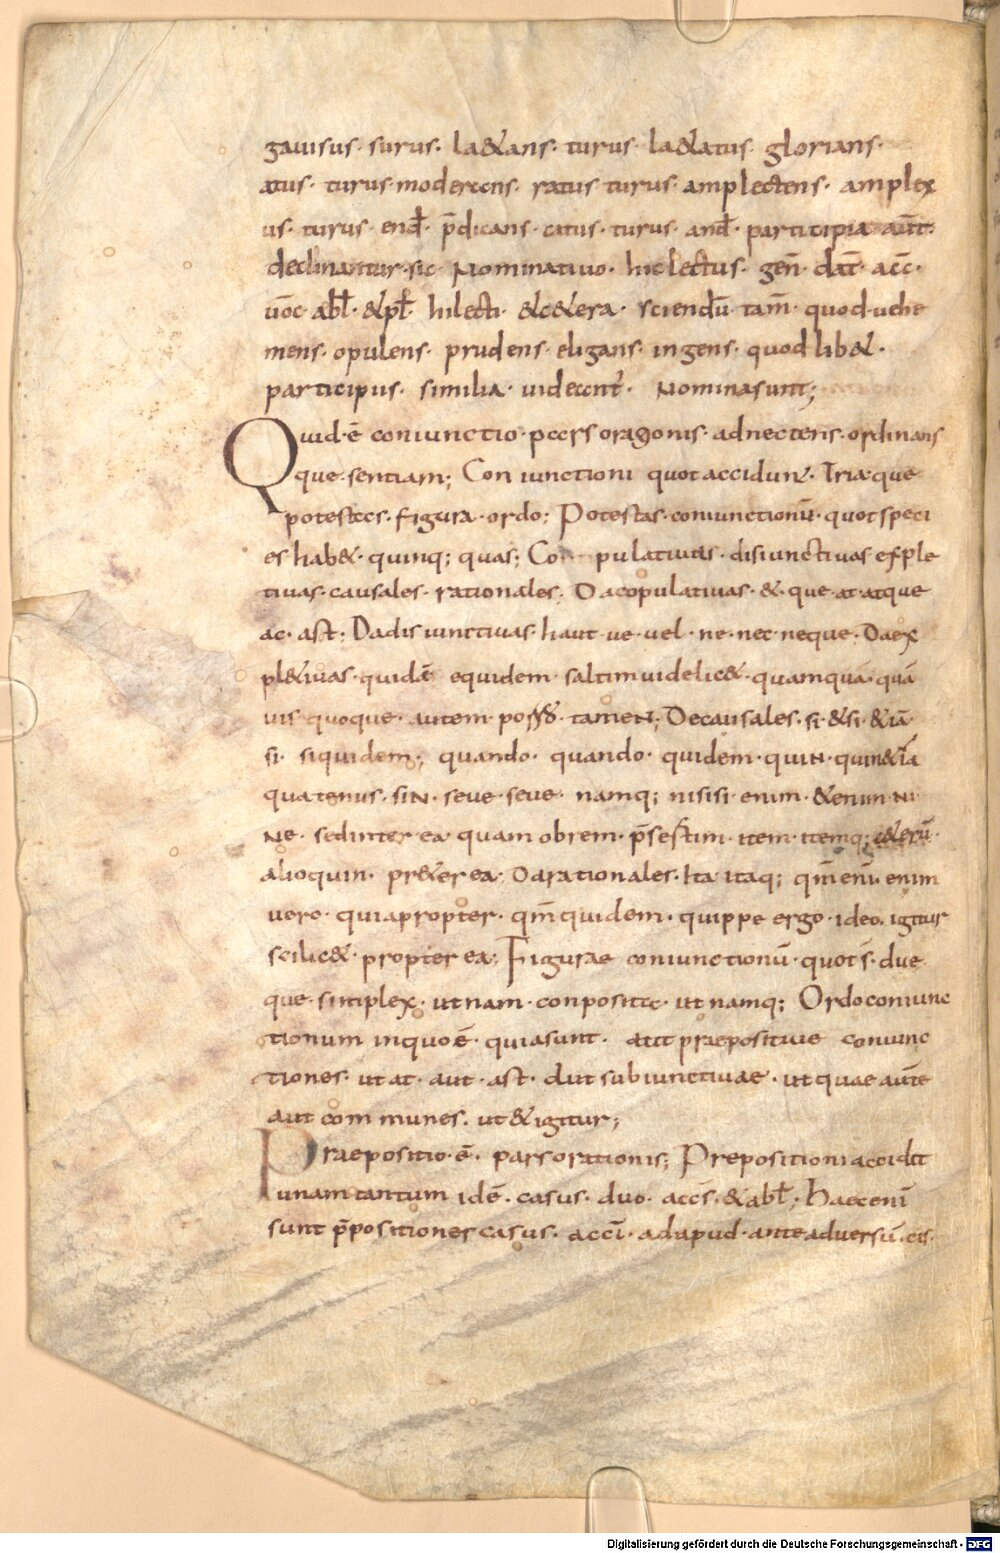 gauisus · surus · la&ans · turus · la&atus · glorians ·
atus · turus · moderans · ratus · turus · amplectens · amplex
us · turus · end̄ · p̄dicans · catus · turus · and̄ · participia aūt ·
declinantur · sic · Nominatiuo · hic lectus · geñ · dat̄ · acc̄ ·
uōc · abl̄ · & pl̄ · hi lecti · & c&era · sciendū tam̄ · quod uehe
mens · opulens · prudens · eligans · ingens · quod lib& ·
participus · similia · uidecnt̄ · Nomina sunt;
Quid · ē coniunctio · pars oragonis · adnectens · ordinans
que · sentiam; Coniunctioni quot accidunt · Tria · que ·
potestas · figura · ordo; Potestas · coniunctionū · quot speci
es hab& · quinq; quas; Co pulatiuas · disiunctiuas efple
tiuas · causales · rationales; Da copulatiuas · & · que · at · atque
ac · ast; Da disiunctiuas · haut · ue · uel · ne · nec neque · Da ex
pl&iuas · quidē equidem · saltim uidelic& · quamquā · quā
uis quoque · autem · tamen; De causales · si · & si · & iā
si · siquidem; quando · quando · quidem · quin · quin&iā
quatenus · sin · seue · seue namq; nisi si enim · &enim · ni
ne · sed inter ea · quam obrem · p̄sestim · item · itemq; c&erū ·
alioquin · pr&er ea · Da rationales · Ita itaq; qm̄ enī enim
uero · quiapropter · qm̄ quidem · quippe ergo · ideo · igitur
scilic& · propter ea; Figurae coniunctionū · quot s̄ · due
que · simplex · ut nam · conposita · ut namq; Ordo coniunc
tionum in quo ē · quia sunt · aut praepositiue coniunc
tiones · ut at · aut · ast · aut subiunctiuae · ut quae aute
aut com munes · ut & igitur;
Praepositio · ē · pars orationis; Prepositioni accidit
unam tantum idē · casus · duo · acc̄s · & abl̄ · Haec enī
sunt p̄positiones casus · acc̄i · ad apud · ante aduersū · cis ·
Digitalisierung gefördert durch die Deutsche Forschungsgemeinschaft - DFG